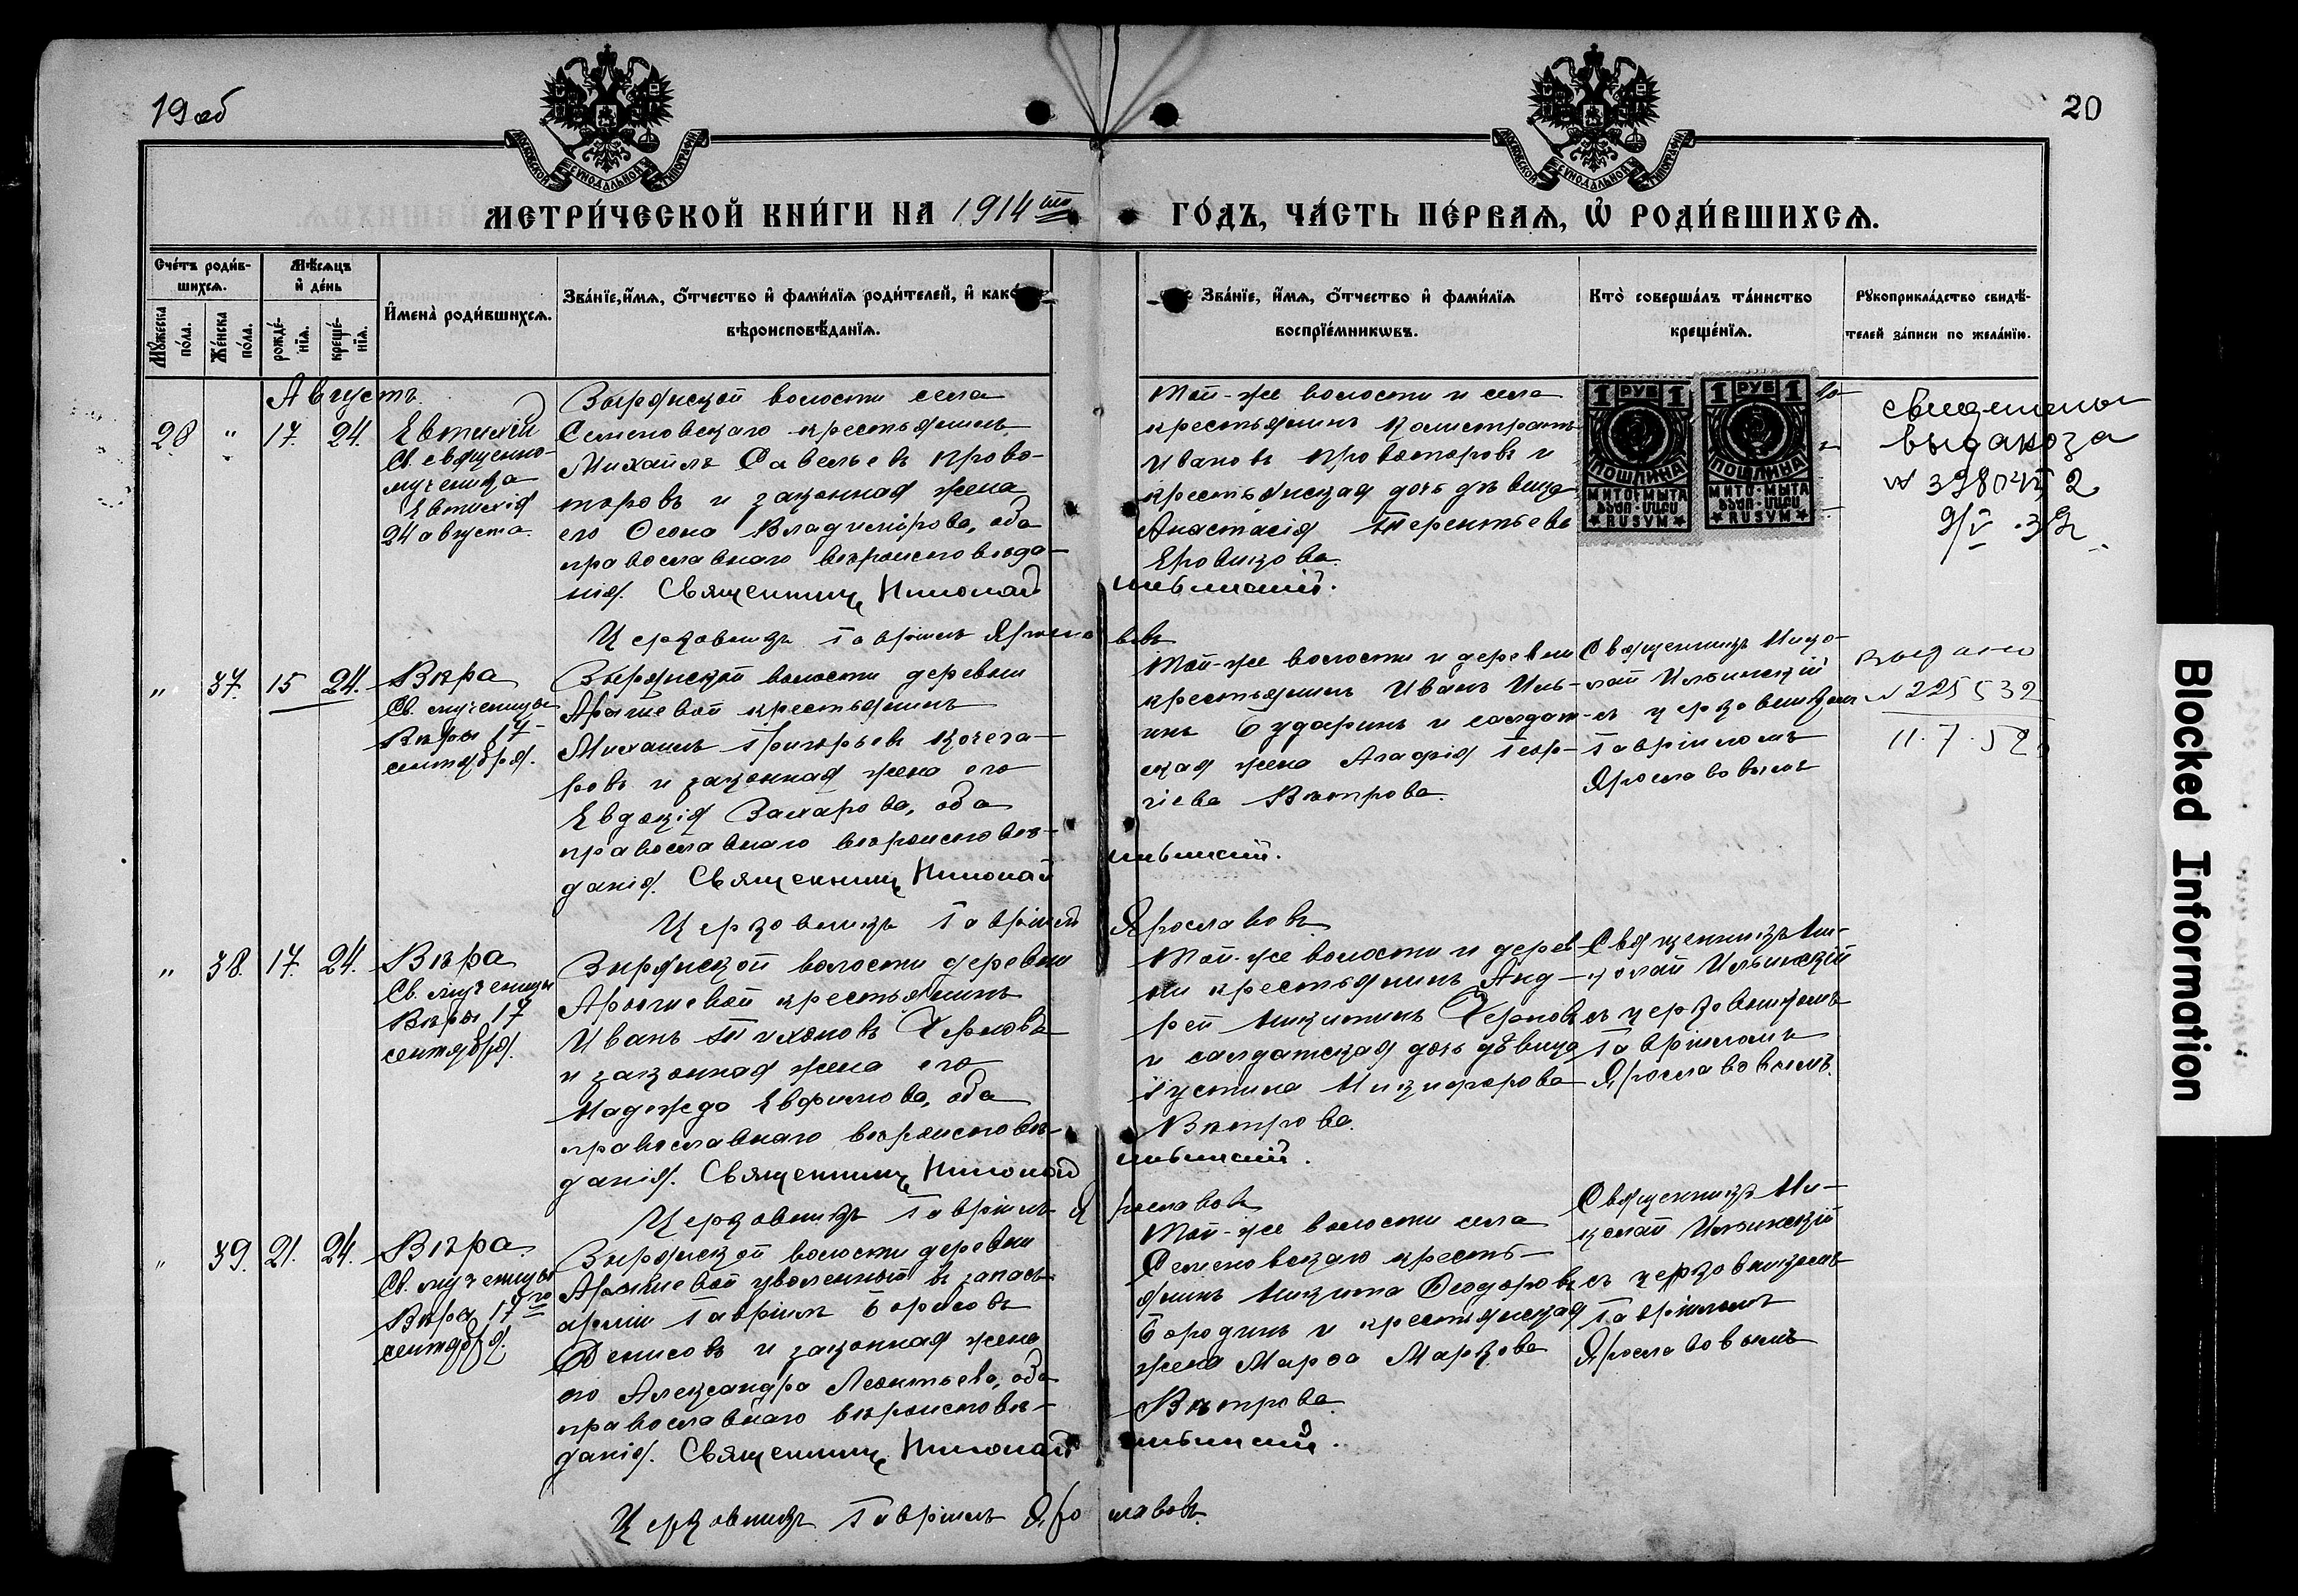 19 об
20
МОСКОВСКОЙ СѴНОДАЛЬНОЙ ТИПОГРАФІИ
МОСКОВСКОЙ СѴНОДАЛЬНОЙ ТИПОГРАФІИ
МЕТРИ́ЧЕСКОЙ КНИ́ГИ НА 1914 ый
ГО́ДЪ, ЧА́СТЬ ПЕ́РВАѦ, Ѡ҆ РОДИ́ВШИХСѦ.
Сче́тъ роди́в-
шихсѧ.
Мꙋ́жеска по́ла.
Же́нска по́ла.
Мѣ́сѧцъ
и҆ де́нь
рожде́-
нїѧ.
креще́-
нїѧ.
И҆мена̀ роди́вшихсѧ.
Зва́нїе, и҆́мѧ, ѻ҆́тчество и҆ фами́лїѧ роди́телей, и҆ како́
вѣроисповѣ́данїѧ.
Зва́нїе, и҆́мѧ, ѻ҆́тчество и҆ фами́лїѧ
воспрїе́мникѡвъ.
Кто̀ соверша́лъ та́инство
креще́нїѧ.
Рꙋкоприкла́дство свидѣ́-
телей за́писи по жела́нїю.
Августъ.
28 " 17. 24.
Евтихій
Св. священно-
мученика
Евтихія
24 августа.
Зырянской волости села
Семеновскаго крестьянинъ
Михаилъ Савельевъ Прово-
торовъ и законная жена
его Ѳеона Владимірова, оба
православнаго вѣроисповѣда-
нія. Священникъ Николай
Ильинскій.
Церковникъ Гавріилъ Ярославовъ
Той-же волости и села
крестьянинъ Калистратъ
Ивановъ Провоторовъ и
крестьянская дочь дѣвица
Анастасія Терентьева
1 РУБ 1
ПОШЛИНА
МИТО-МЫТА
RUSUM
1 РУБ 1
ПОШЛИНА
МИТО-МЫТА
RUSUM
" 37. 15 24.
Вѣра
Св. мученицы
Вѣры 17
сентября.
Зырянской волости деревни
крестьянинъ
Михаилъ Григорьевъ Кочега-
ровъ и законная жена его
Евдокія Захарова, оба
православнаго вѣроисповѣ-
данія. Священникъ Николай
Ильинскій.
Церковникъ Гавріилъ
Ярославовъ
Той-же волости и деревни
крестьянинъ Иванъ Иль-
инъ Бударинъ и солдат-
ская жена Агафія Геор-
гіева Вѣтрова.
Священникъ Нико-
лай Ильинскій
съ церковникомъ
Гавріиломъ
Ярославовымъ
выдано
№ 225532
11.7.52
" 38. 17. 24.
Вѣра
Св. мученицы
Вѣры 17
сентября.
Зырянской волости деревни
крестьянинъ
Иванъ Тихоновъ Черновъ
и законная жена его
Надежда Евфимова, оба
православнаго вѣроисповѣ-
данія. Священникъ Николай
Ильинскій.
Церковникъ Гавріилъ Ярославовъ
Той-же волости и дерев-
ни крестьянинъ Анд-
рей Никитинъ Черновъ
и солдатская дочь дѣвица
Іустина Никифорова
Вѣтрова.
Священникъ Ни-
колай Ильинскій
съ церковникомъ
Гавріиломъ
Ярославовымъ.
" 39. 21. 24.
Вѣра.
Св. мученицы
Вѣры 17го
сентября.
Зырянской волости деревни
уволенный въ запасъ
арміи Гавріилъ Борисовъ
Денисовъ и законная жена
его Александра Леонтьева, оба
православнаго вѣроисповѣ-
данія. Священникъ Николай
Ильинскій.
Церковникъ Гавріилъ Ярославовъ.
Той-же волости села
Семеновскаго кресть-
янинъ Никита Ѳеодоровъ
Бородинъ и крестьянская
жена Марѳа Маркова
Вѣтрова.
Священникъ Ни-
колай Ильинскій
съ церковникомъ
Гавріиломъ
Ярославовымъ
Blocked Information